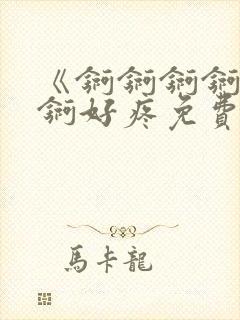 《錒錒錒錒
錒好疼免費
馬卡龍